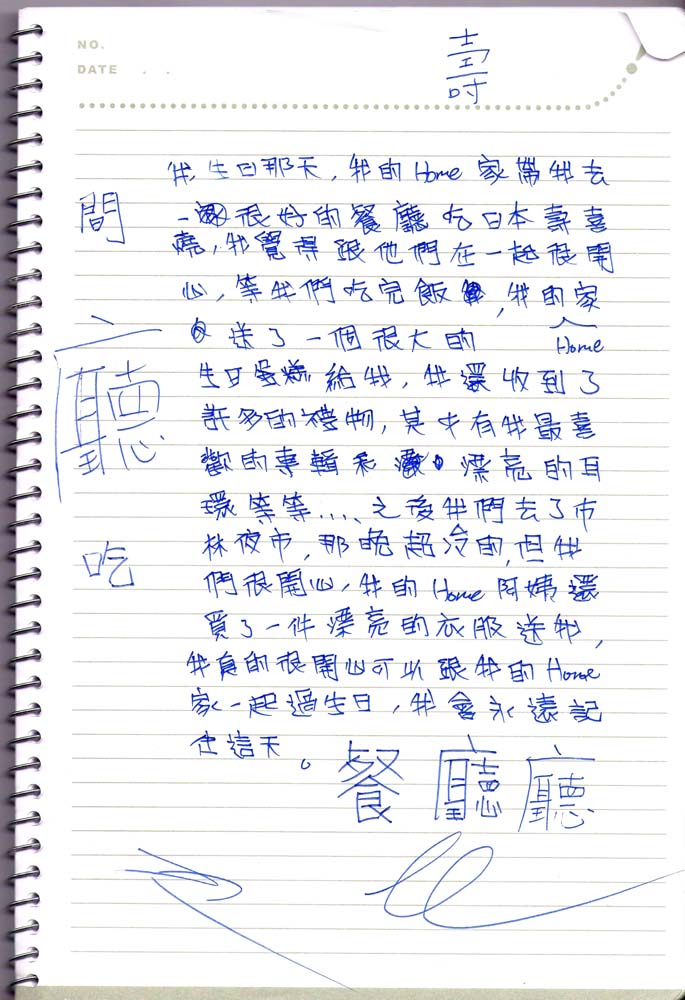 NO.
DATE . .
壽
我生日那天，我的Home家帶我去
一個很好的餐廳吃日本壽喜
燒，我覺得跟他們在一起很開
心，等我們吃完飯，我的家
送了一個很大的
Home
生日蛋糕給我，我還收到了
許多的禮物，其中有我最喜
歡的專輯和漂亮的耳
環等等....，之後我們去了市
林夜市，那晚超冷的，但我
們很開心，我的Home阿姨還
買了一件漂亮的衣服送我，
我真的很開心可以跟我的Home
家一起過生日，我會永遠記
住這天。
間
廳
吃
餐廳廳